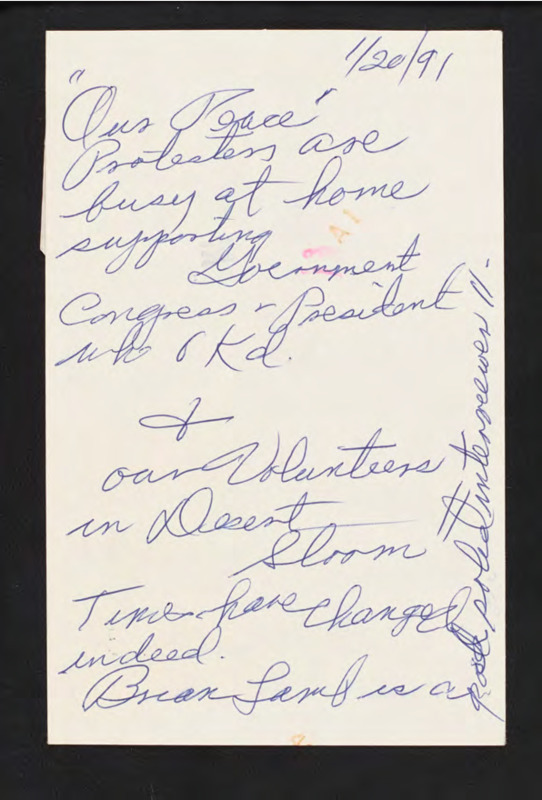 1/20/91
"Our Peace"
Protesters are
busy at home
supporting
Goernment
Congress & President
who OKd.
&
our Volunteers
in Desert
Storm
Times have changed
indeed.
Brian Lamb is a
good solid interviewer !!